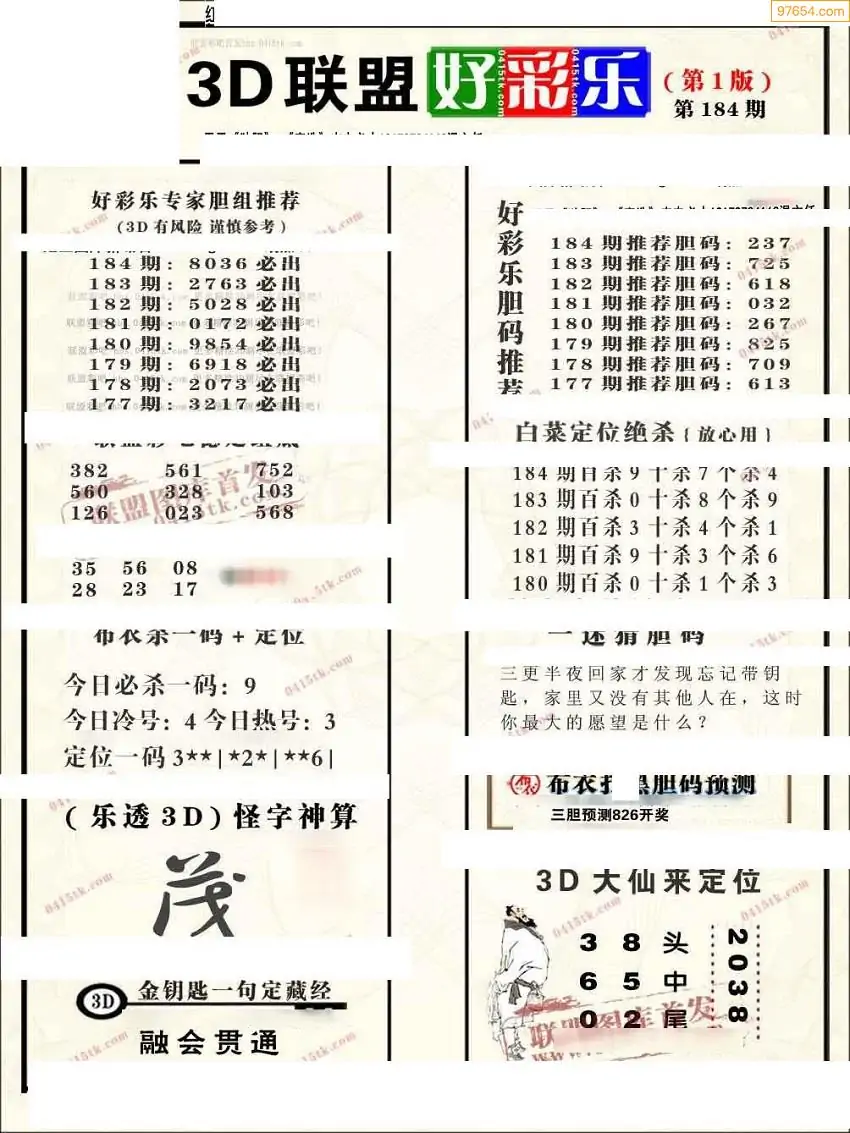 97654.com
3D联盟好彩乐
(第1版)
第184期
好彩乐专家胆组推荐
(3D有风险 谨慎参考)
184期: 8036必出
183期: 2763必出
182期: 5028必出
181期: 0172必出
180期: 9854必出
179期: 6918必出
178期: 2073必出
177期: 3217必出
382 561 752
560 328 103
126 023 568
35 56 08
28 23 17
布衣杀一码+定位
今日必杀一码: 9
今日冷号: 4 今日热号: 3
定位一码 3**|*2*|**6|
(乐透3D)怪字神算
茂
3D 金钥匙一句定藏经
融会贯通
好彩乐胆码推荐
184期推荐胆码: 237
183期推荐胆码: 725
182期推荐胆码: 618
181期推荐胆码: 032
180期推荐胆码: 267
179期推荐胆码: 825
178期推荐胆码: 709
177期推荐胆码: 613
白菜定位绝杀{放心用}
184期百杀9十杀7个杀4
183期百杀0十杀8个杀9
182期百杀3十杀4个杀1
181期百杀9十杀3个杀6
180期百杀0十杀1个杀3
一迷猜胆码
三更半夜回家才发现忘记带钥
匙，家里又没有其他人在，这时
你最大的愿望是什么？
胆码预测
三胆预测826开奖
3D大仙来定位
3 8 头
6 5 中
0 2 尾
2038
联盟图库首发
0415tk.com